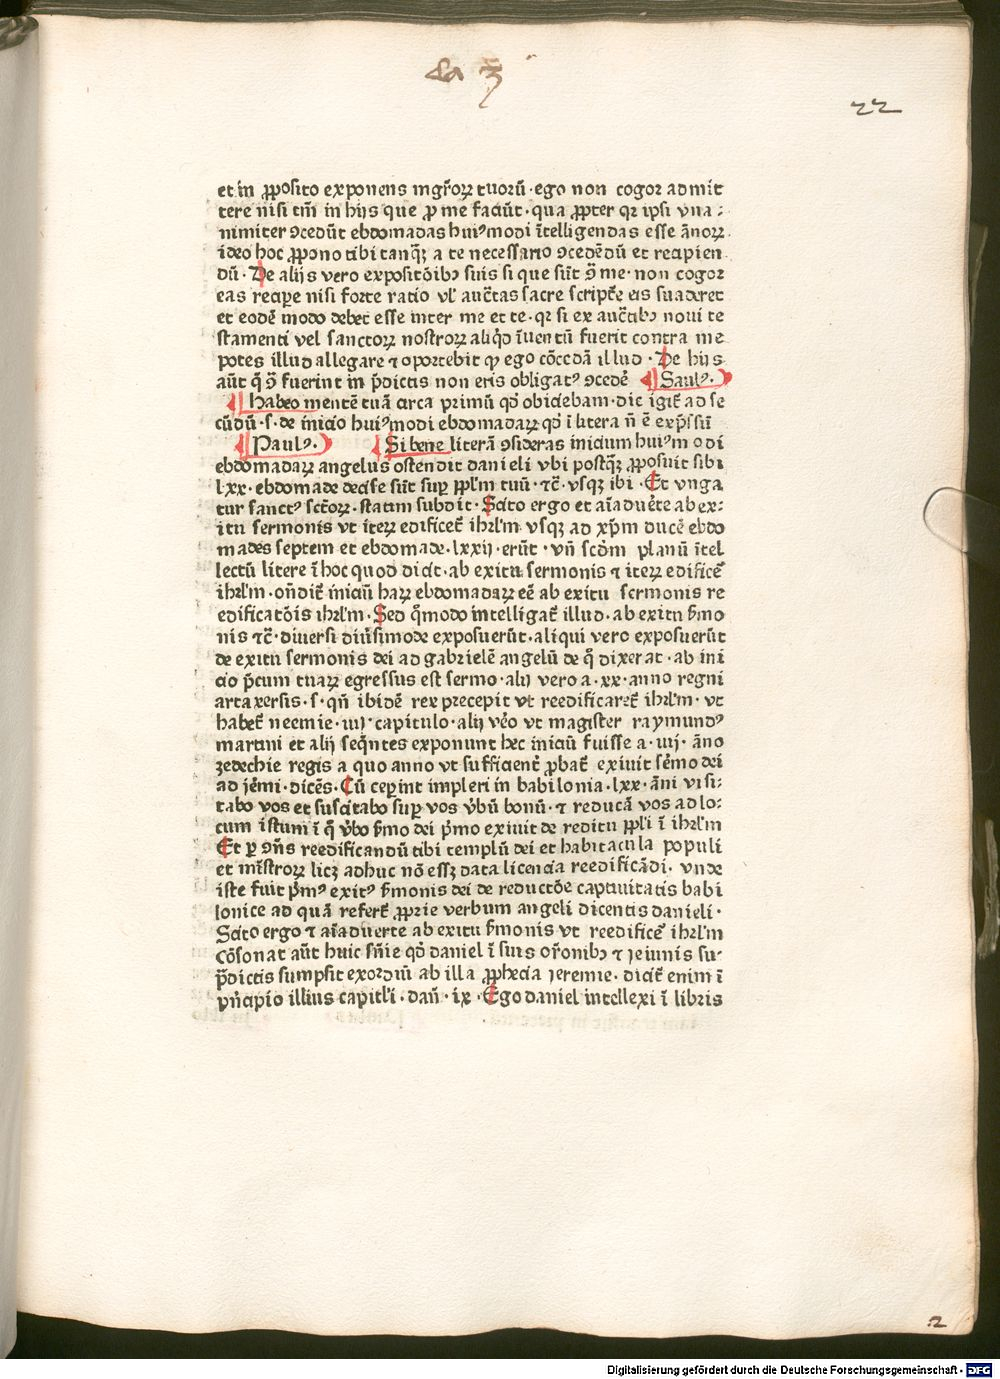 22
et in ꝓposito exponens mgr̄oꝝ tuorū · ego non cogor admit
tere nisi tm̄ in hijs que ꝓ me faciūt · qua ꝓpter qꝛ ipsi vna⸗
nimiter ꝯcedūt ebdomadas huiꝰmodi ītelligendas esse ānoꝝ
ideo hoc ꝓpono tibi tanqꝫ a te necessario ꝯcedēdū et recipien
dū · De alijs vero expositōibꝫ suis si que sūt ꝯ̄ me · non cogor
eas recipe nisi forte ratio vl' auct̄as sacre script̄e eis suaderet
et eodē modo debet esse inter me et te · qꝛ si ex auct̄tibꝫ noui te
stamenti vel sanctoꝝ nostroꝝ aliqd̄ īuentū fuerit contra me
potes illud allegare ⁊ oportebit ꝙ ego cōcedā illud · De hijs
aūt q̄ ꝯ̄ fuerint in p̄dictis non eris obligatꝰ ꝯcedē Saulꝰ ·
Habeo mentē tuā circa primū qd̄ obiciebam · dic igit̄ ad se
cūdū · s · de inicio huiꝰmodi ebdomadaꝝ qd̄ ī litera n̄ ē exp̄ssū
Paulꝰ · Si bene literā ꝯsideras inicium huiꝰmodi
ebdomadaꝝ angelus ostendit danieli vbi postqꝫ ꝓposuit sibi
lxx · ebdomade decise sūt suꝑ ppl'm tuū · ⁊c̄ · vsqꝫ ibi · Et vnga
tur sanctꝰ sct̄oꝝ · statim subdit · Scito ergo et aīaduēte ab ex⸗
itu sermonis vt iteꝝ edificet̄ ihrl'm vsqꝫ ad xp̄m ducē ebdo
mades septem et ebdomade · lxxij · erūt · vn̄ scd̄m planū ītel
lectū litere ī hoc quod dicit · ab exitu sermonis ⁊ iteꝝ edificet̄
ihrl'm · on̄dit̄ iniciū haꝝ ebdomadaꝝ eē ab exitu sermonis re
edificatōis ihrl'm · Sed q̄modo intelligat̄ illud · ab exitu s̄mo
nis ⁊c̄ · diuersi diūsimode exposuerūt · aliqui vero exposuerūt
de exitu sermonis dei ad gabrielē angelū de q̄ dixerat · ab ini
cio p̄cum tuaꝝ egressus est sermo · alij vero a · xx · anno regni
artaxersis · s · qn̄ ibidē rex precepit vt reedificaret̄ ihrl'm · vt
habet̄ neemie · iiij · capitulo · alij vēo vt magister raymundꝰ
martini et alij seq̄ntes exponunt hec iniciū fuisse a · iiij · āno
zedechie regis a quo anno vt sufficient̄ ꝓbat̄ exiuit s̄mo dei
ad jēmi · dicēs · Cū ceꝑint impleri in babilonia · lxx · āni visi⸗
tabo vos et suscitabo suꝑ vos v̄bū bonū · ⁊ reducā vos ad lo⸗
cum istum ī q̄ v̄bo s̄mo dei p̄mo exiuit de reditu ppl'i ī ihrl'm
Et ꝑ ꝯn̄s reedificandū tibi templū dei et habitacula populi
et mīstroꝝ licꝫ adhuc nō essꝫ data licencia reedificādi · vnde
iste fuit p̄mꝰ exitꝰ s̄monis dei de reductōe captiuitatis babi
lonice ad quā refert̄ ꝓprie verbum angeli dicentis danieli ·
Scito ergo ⁊ aīaduerte ab exitu s̄monis vt reedificet̄ ihrl'm
Cōsonat aūt huic sn̄ie qd̄ daniel ī suis or̄onibꝫ ⁊ jeiunis su⸗
p̄dictis sumpsit exordiū ab illa ꝓphecia jeremie · dicit̄ enim ī
pn̄cipio illius capitl'i · dan̄ · ix · Ego daniel intellexi ī libris
2
Digitalisierung gefördert durch die Deutsche Forschungsgemeinschaft - DFG